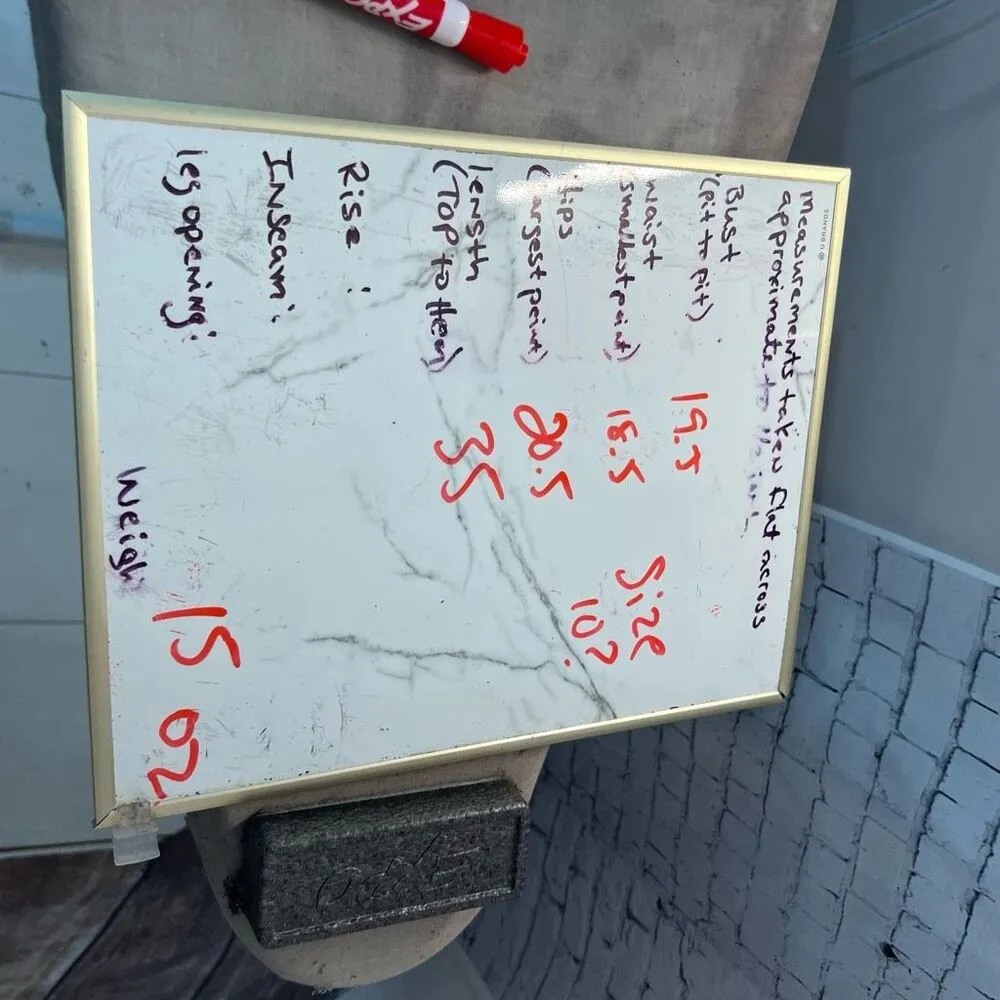 EXPO
TONYUAN ®
Measurements taken flat across
approximate to
Bust 19.5
(Pit to pit)
waist 18.5
smallest point)
Hips 20.5
(Largest point)
length 35
(TOP to Hem)
Rise :
Inseam:
leg opening:
Size
10?
Weigh
15 oz